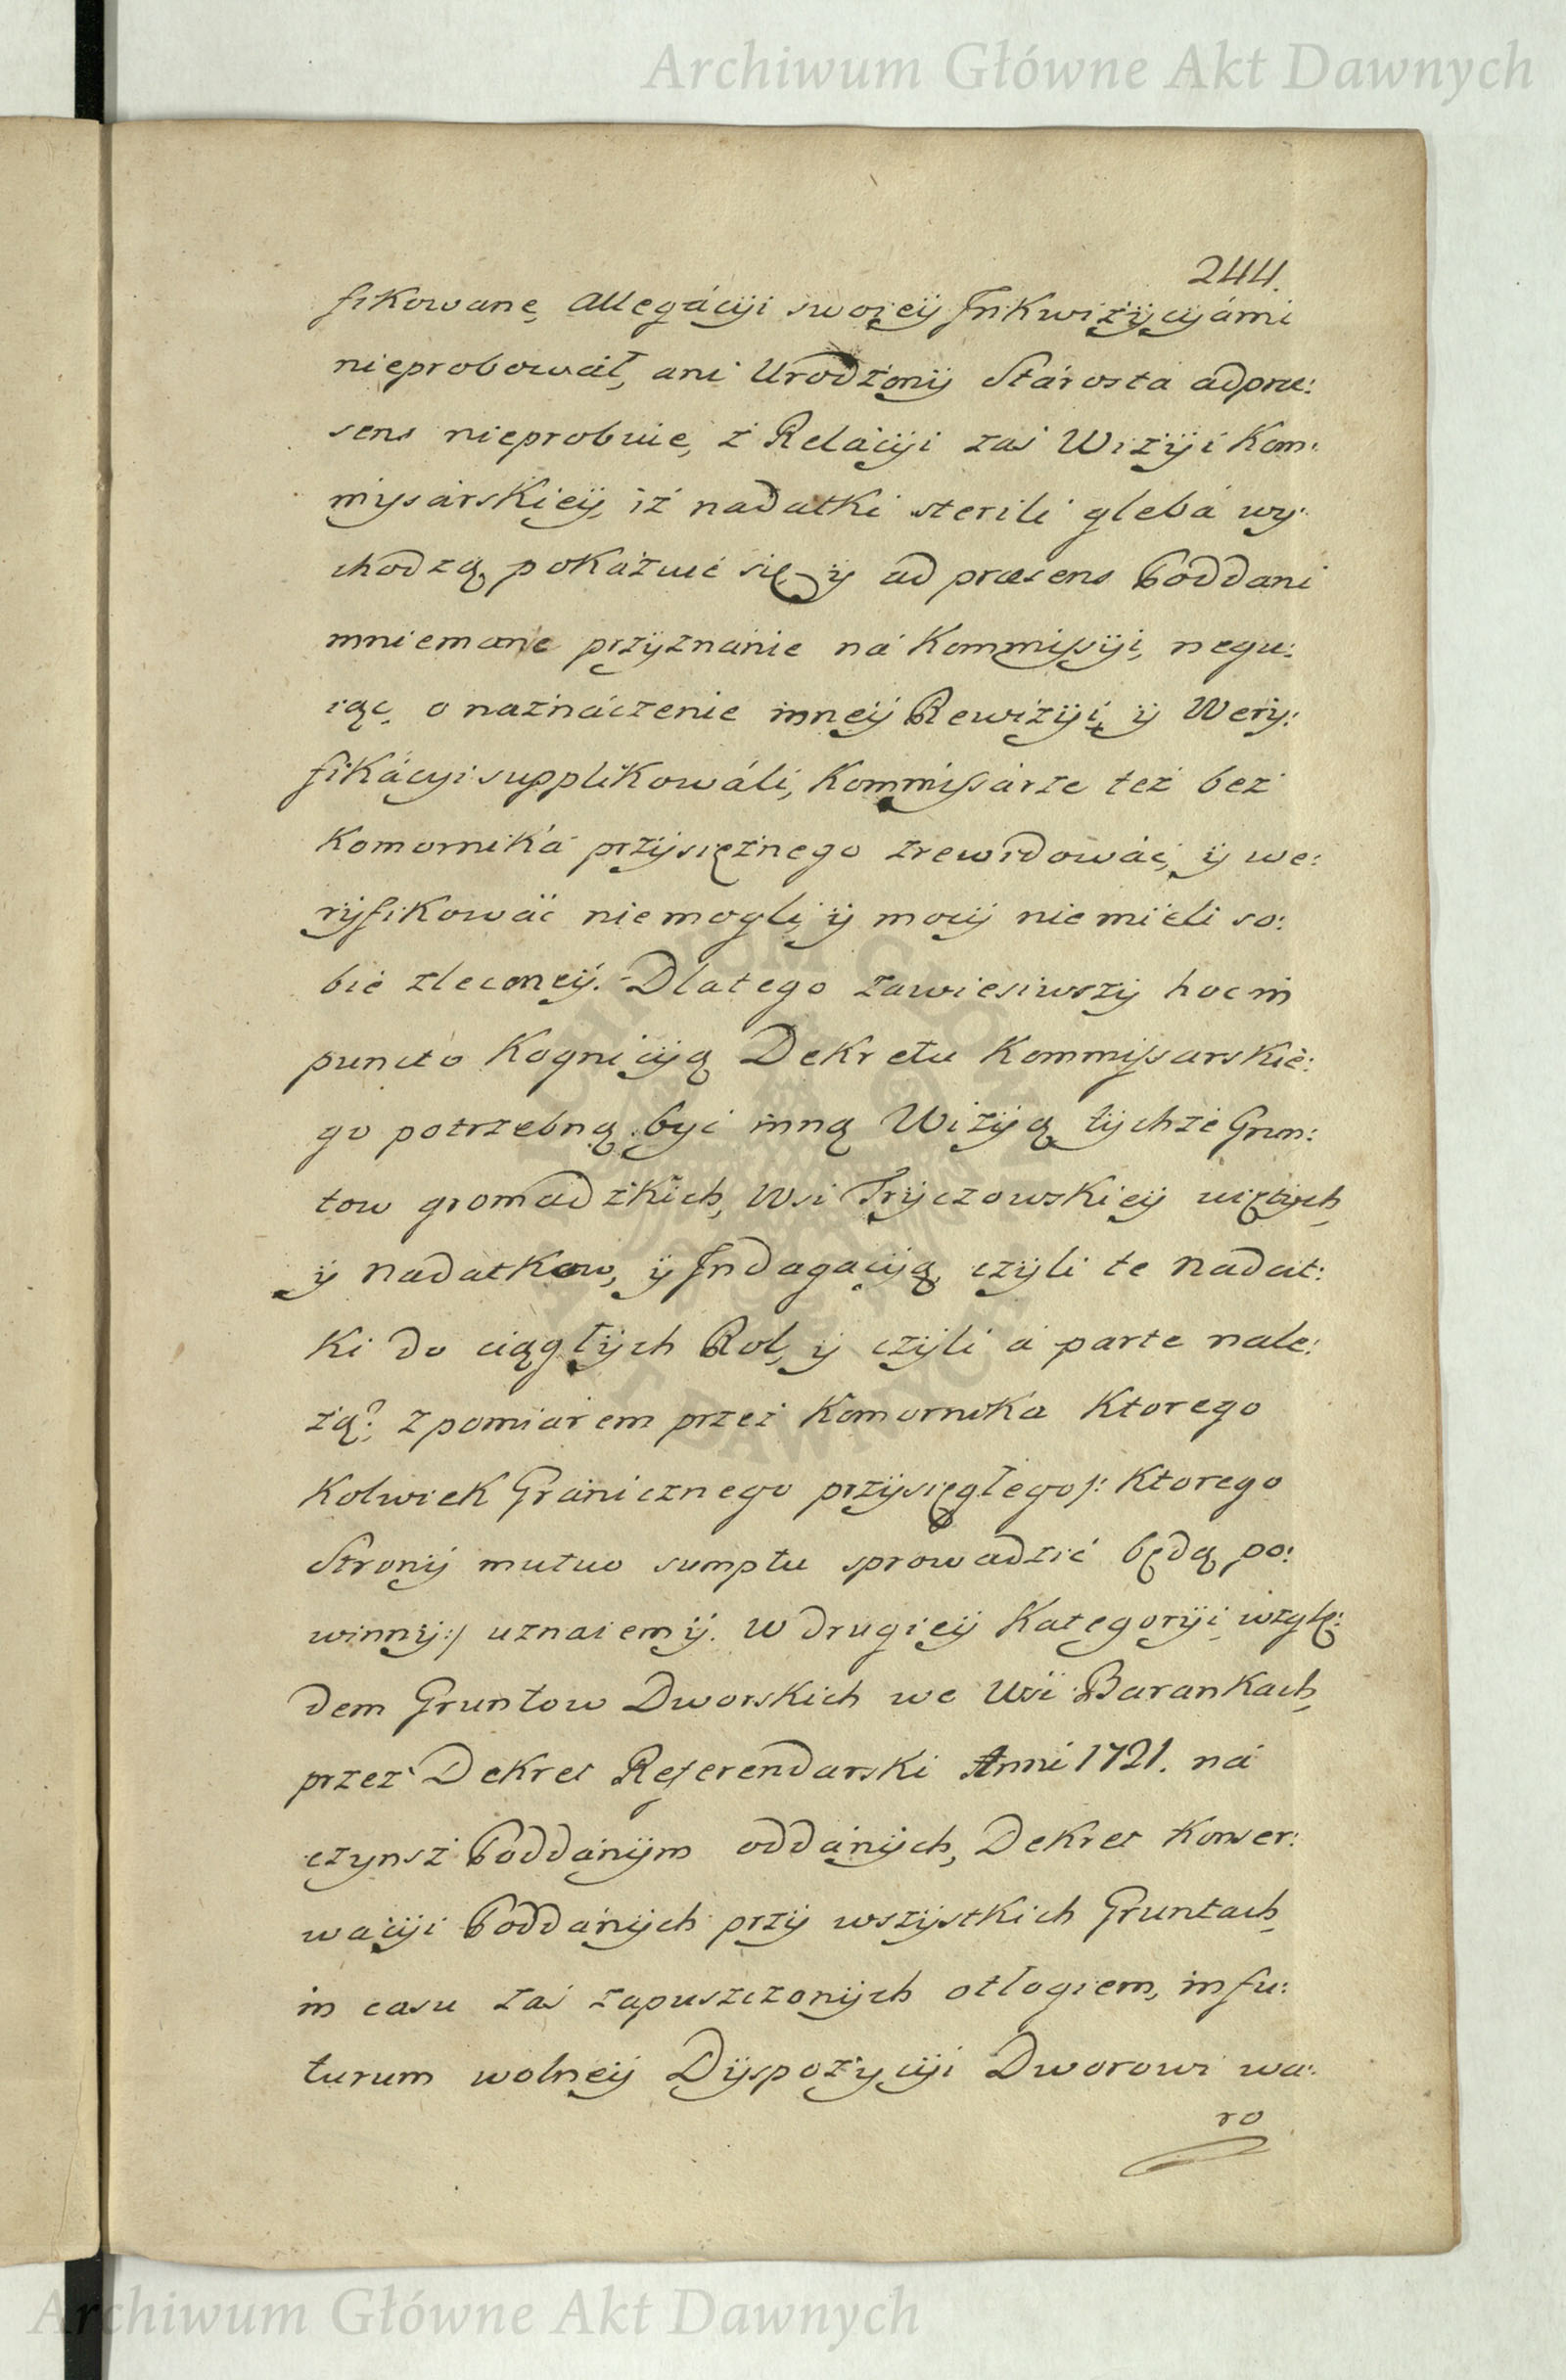 Archiwum Główne Akt Dawnych
244.
fikowanę Allegácyi swoięy Inkwizycyámi
nieprobował, ani Urodzony Stárosta ad præ:
sens nieprobuie, z Relácyi zaś Wizyi Kom:
mysárskiey, iż nadatki sterili glebá wy:
chodzą pokázuie się, y ad præsens Poddani
mniemane przyznánie ná Kommissyi, negu:
iąc, o naznáczenie inney Rewizyi, y Wery:
fikácyi supplikowáli, Kommissárze też bez
Komorniká przysiężnego zrewidowáć, y we:
ryfikowáć niemogli, y mocy niemieli so:
bie zleconey. Dlatego zawiesiwszy hoc in
puncto Kognicyą Dekretu Kommissarskie:
go potrzebną być inną Wizyą tychże Grun:
tow gromadzkich, Wsi Tryczowskiey więtych
y Nadatkow, y Indagacyą, czyli te Nadat:
ki do ciągłych Rol, y czyli á parte nale:
żą?; z pomiárem przez Komorniká Ktorego
Kolwiek Gránicznego przysięgłego /: Ktorego
Strony mutuo sumptu sprowadzić będą po:
winny :/ uznaiemy. W drugiey Kategoryi wzglę:
dem Gruntow Dworskich we Wsi Barankach,
przez Dekret Referendarski Anni 1721. ná
czynsz Poddánym oddánych, Dekret Konser:
wácyi Poddánych przy wszystkich Gruntach,
in casu zaś zapuszczonych otłogiem, in fu:
turum wolney Dyspozycyi Dworowi wa:
ro
Archiwum Główne Akt Dawnych